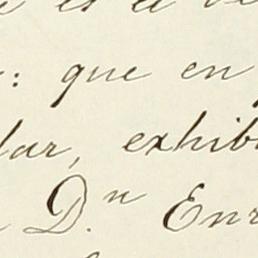 : que en
lar, exhib
D.n Enr